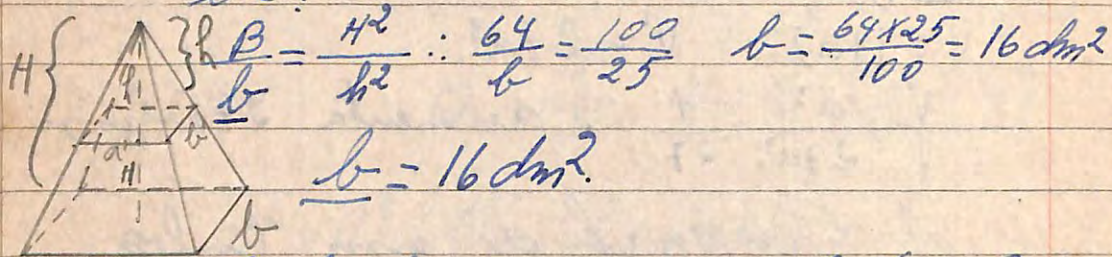 H h B/b = H²/h² ∴ 64/b = 100/25 b = 64×25/100 = 16 dm²
h b
a
H b = 16 dm².
b